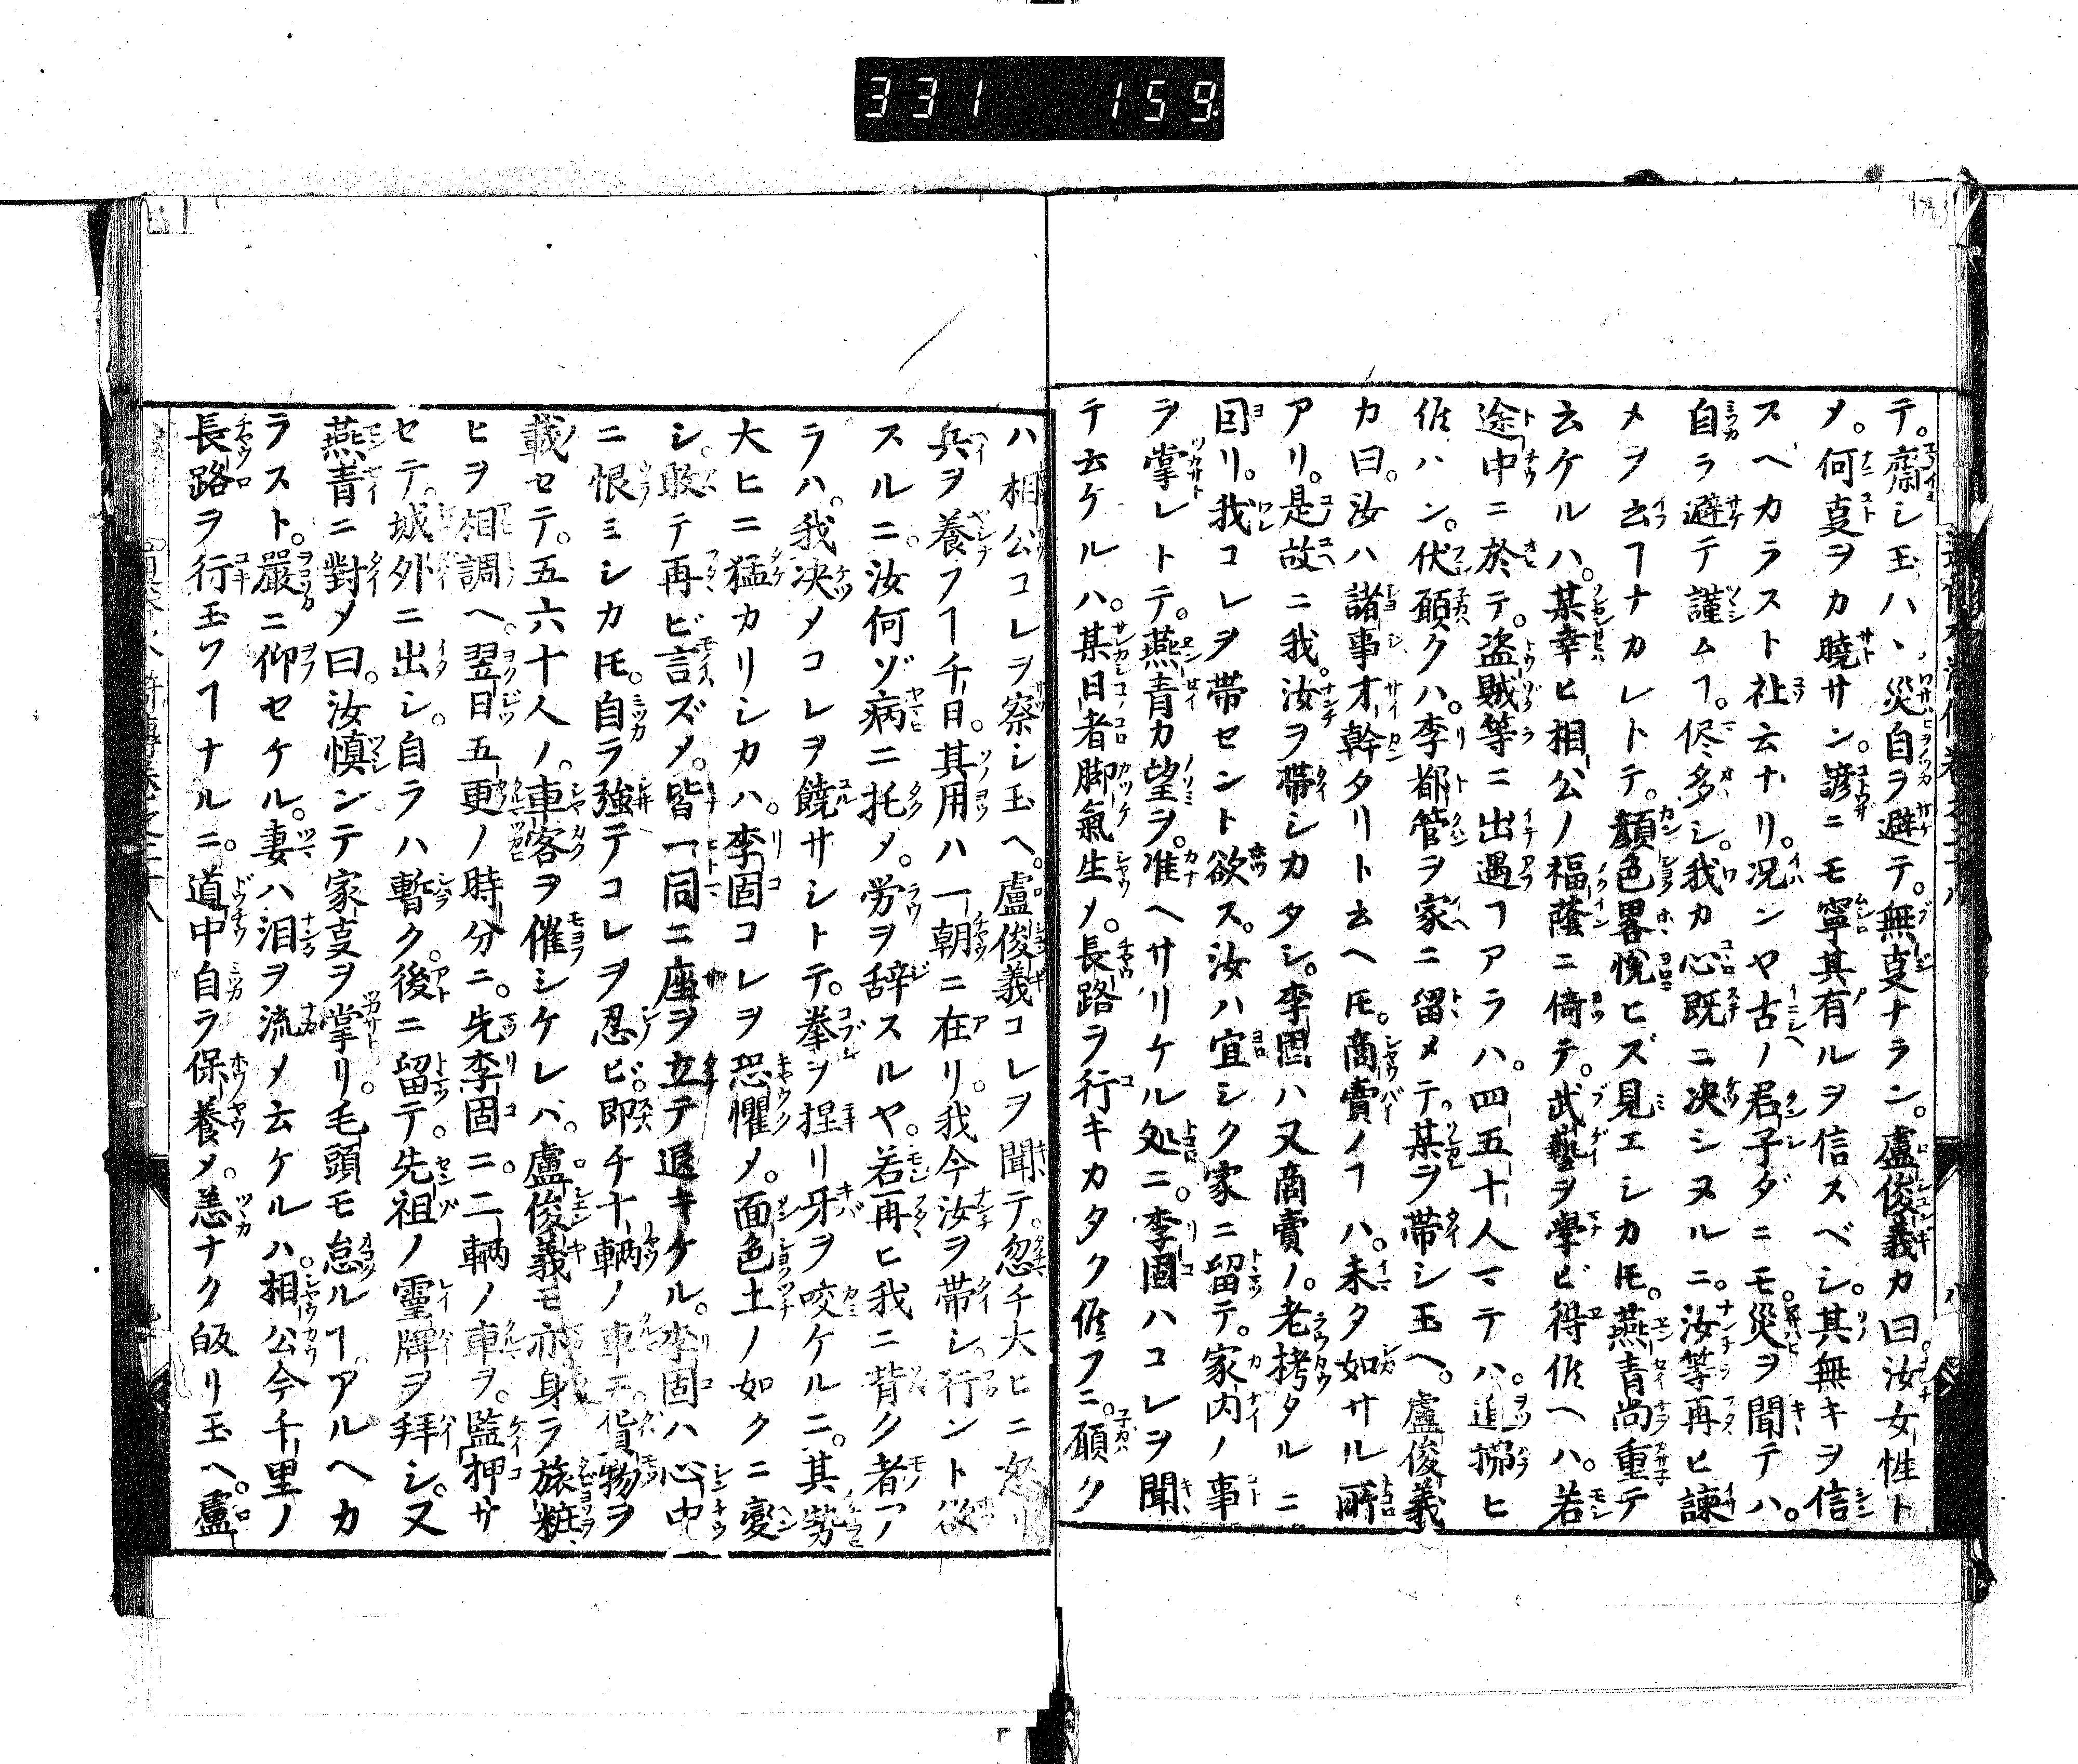 331 159
テ。齋シ玉ハヽ災自ヲ避テ。無㕝ナラン。盧俊義カ曰。汝女性ト
メ。何㕝ヲカ曉サン。諺ニモ寧其有ルヲ信スベシ。其無キヲ信
スヘカラスト社云ナリ。况ンヤ古ノ君子ダニモ。災ヲ聞テハ。
自ラ避テ謹ムヿ。侭多シ。我カ心既ニ决シヌルニ。汝等再ヒ諫
メヲ云フヿナカレトテ。顔色畧悦ヒズ見エシカ𪜈。燕青尚重テ
云ケルハ。某幸ヒ相公ノ福蔭ニ倚テ。武藝ヲ學ビ得侭ヘハ。若
途中ニ於テ。盗賊等ニ出遇フヿアラハ。四五十人マテハ。追拂ヒ
侭ハン。伏願クハ。李都管ヲ家ニ留メテ。某ヲ帯シ玉ヘ。盧俊義
カ曰。汝ハ諸事才幹タリト云ヘ𪜈。商賣ノヿハ。未タ如サル所
アリ。是故ニ我。汝ヲ帯シカタシ。李固ハ又商賣ノ。老栲タルニ
因リ。我コレヲ帯セント欲ス。汝ハ宜シク家ニ留テ。家内ノ事
ヲ掌レトテ。燕青カ望ヲ。准ヘサリケル処ニ。李固ハコレヲ聞
テ云ケルハ。某日者脚氣生メ。長路ヲ行キカタク侭フニ。願ク
ハ相公コレヲ察シ玉ヘ。盧俊義コレヲ聞テ。忽チ大ヒニ怒リ
兵ヲ養フヿ千日。其用ハ一朝ニ在リ。我今汝ヲ帯シ。行ント欲
スルニ。汝何ゾ病ニ托メ。労ヲ辞スルヤ。若再ヒ我ニ背ク者ア
ラハ。我决メコレヲ饒サシトテ。拳ヲ捏リ牙ヲ咬ケルニ。其勢
大ヒニ猛カリシカハ。李固コレヲ恐懼メ。面色土ノ如クニ變
シ。敢テ再ビ言ズメ。皆一同ニ座ヲ立テ退キケル。李固ハ心中
ニ恨ミシカ𪜈。自ラ強テコレヲ忍ビ。即チ十輌ノ車ニ。貨物ヲ
載セテ。五六十人ノ。車客ヲ催シケレバ。盧俊義モ亦身ラ旅粧
ヒヲ相調ヘ。翌日五更ノ時分ニ。先李固ニ。二輌ノ車ヲ。監押サ
セテ。城外ニ出シ。自ラハ暫ク。後ニ留テ。先祖ノ靈牌ヲ拜シ。又
燕青ニ對メ曰。汝慎ンテ家㕝ヲ掌リ。毛頭モ怠ルヿアルヘカ
ラスト。嚴ニ仰セケル。妻ハ泪ヲ流メ云ケルハ。相公今千里ノ
長路ヲ行玉フヿナルニ。道中自ラ保養メ。恙ナク皈リ玉ヘ。盧